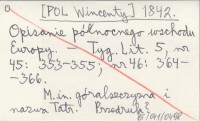 [POL Wincenty] 1842.
Opisanie północnego wschodu
Europy. — Tyg. Lit. 5, nr
45: 353–355, nr 46: 364–
–366.
M. in. góralszczyzna i
nazwa Tatr. Przedruk?